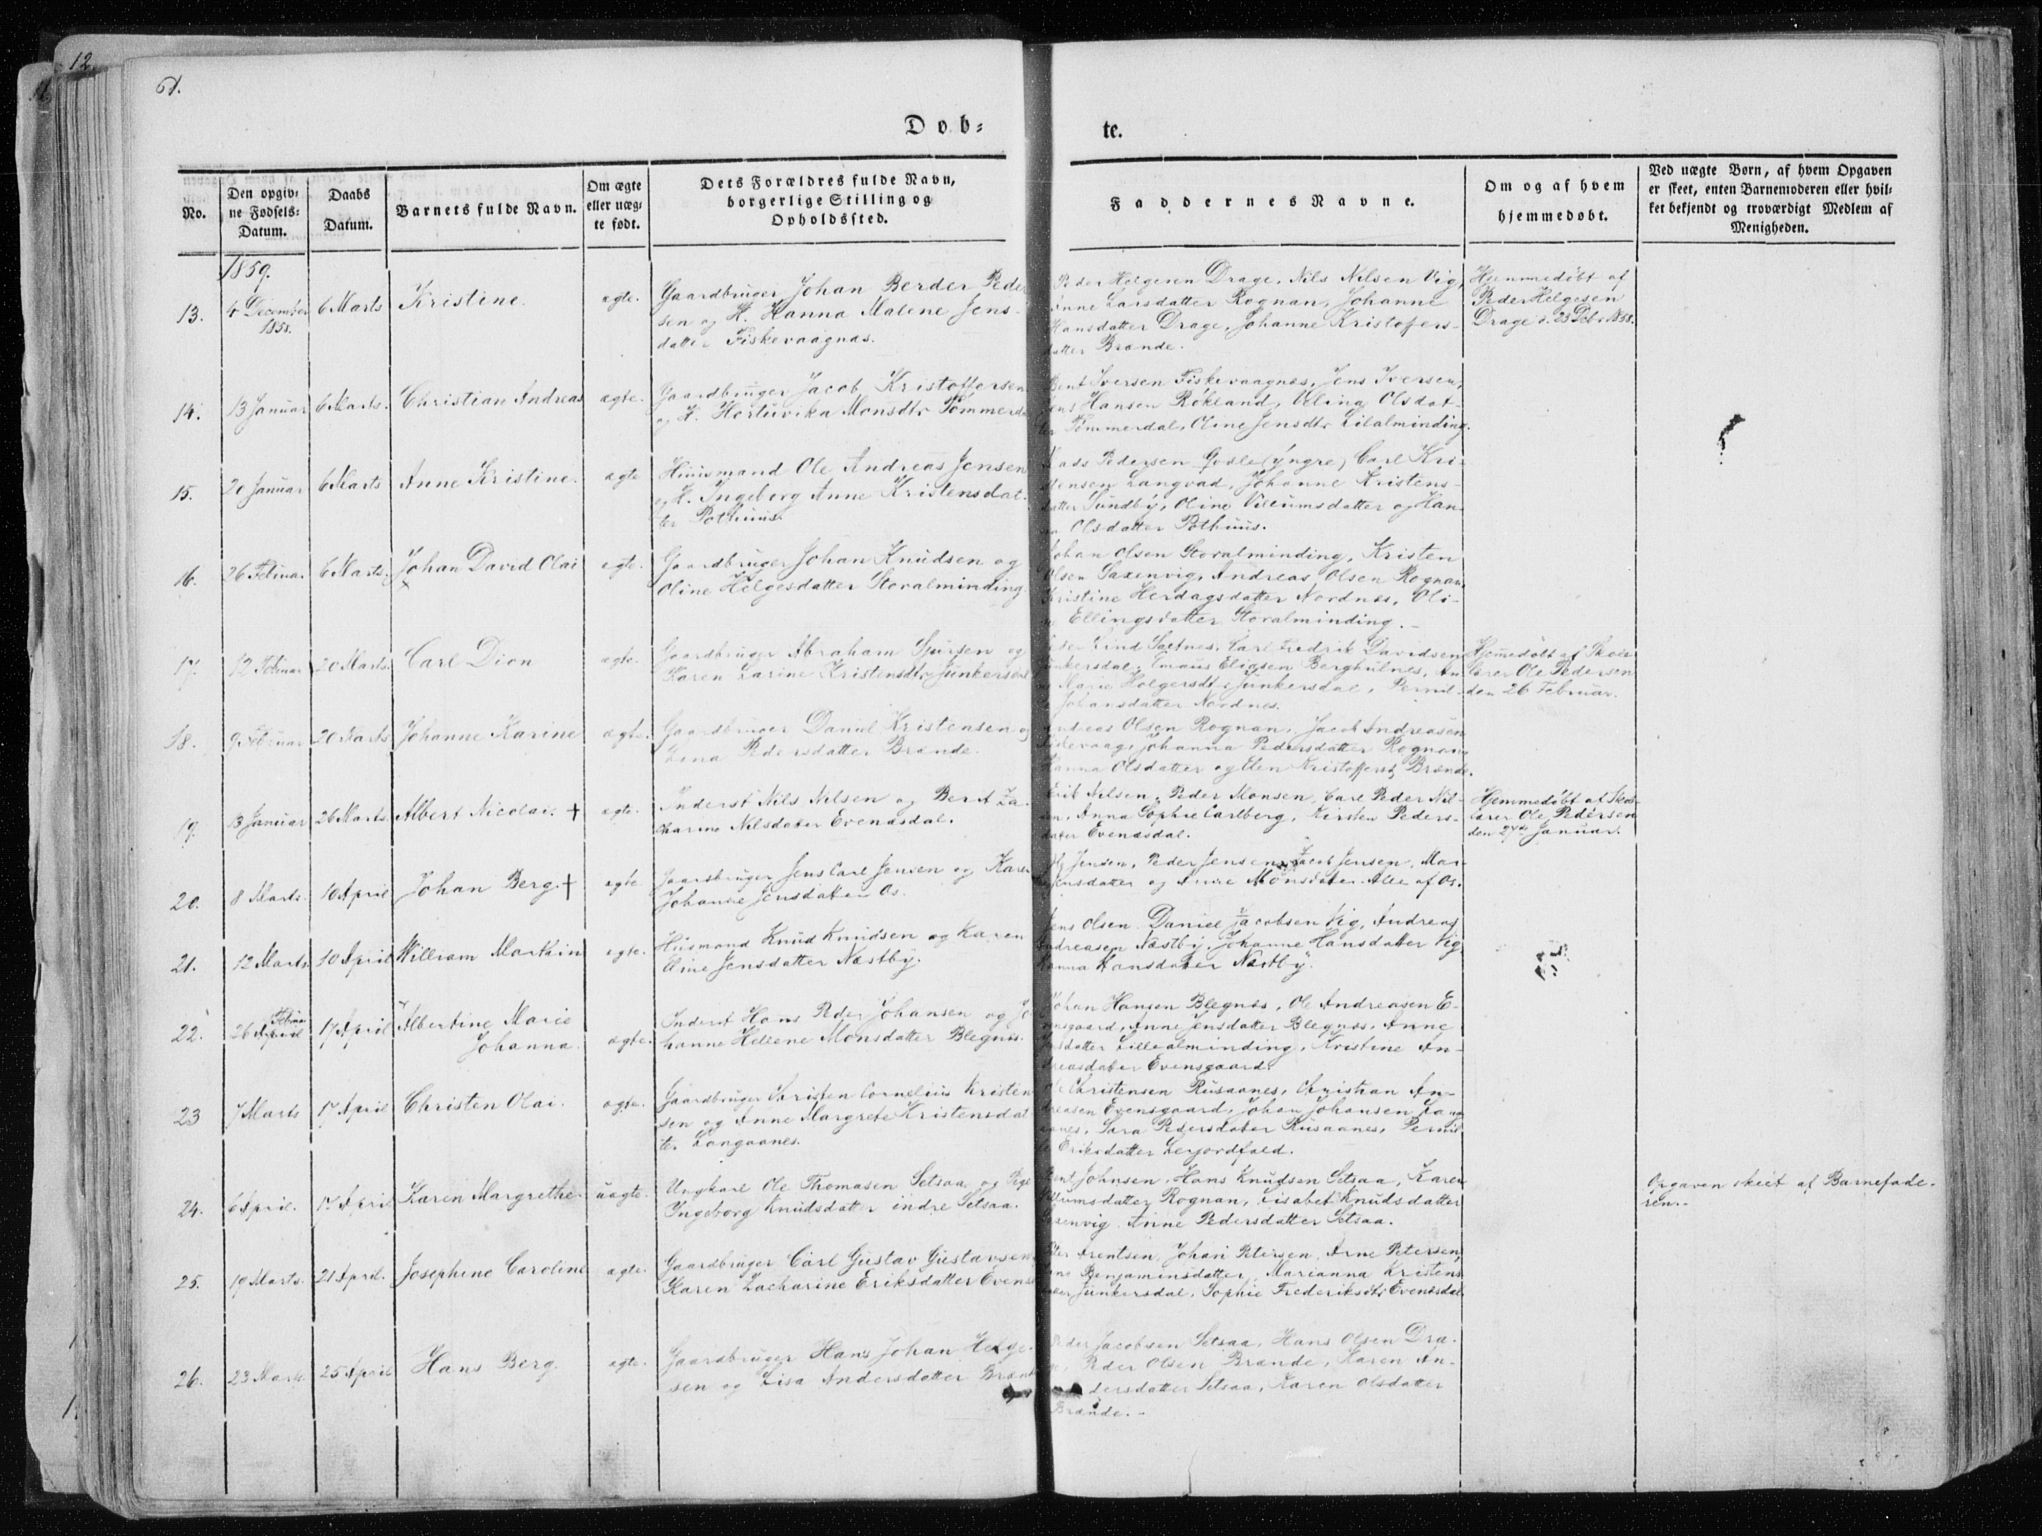 12.
61.
Døb-
te.
No.
Den opgiv-
ne Fødsels-
Datum.
Daabs
Datum.
Barnets fulde Navn.
Om ægte
eller uæg-
te født.
Dets Forældres fulde Navn,
borgerlige Stilling og
Opholdssted.
Faddernes Navne.
Om og af hvem
hjemmedøbt.
Ved uægte Børn, af hvem Opgaven
er skeet, enten Barnemoderen eller hvil-
ket bekjendt og troværdigt Medlem af
Menigheden.
1859.
13.
4 December
1858.
6 Marts
Kristine
ægte.
Gaardbruger Johan Berder Peder
sen og H. Hanna Malene Jens-
datter Fiskevaagnæs.
Peder Helgesen Drage, Nils Nilsen Vig,
Anne Larsdatter Rognan, Johanne
Hansdatter Drage, Johanne Kristofers-
datter Brænde.
Hjemmedøbt af
Peder Helgesen
Drage d. 23 Dcb. 1858.
14.
13 Januar
6 Marts.
Christian Andreas
ægte.
Gaardbruger Jacob Kristoffersen
og H. Hartuvika Monsdtr Tømmerdal
Bent Iversen Fiskevaagnæs, Jens Iversen,
Jens Hansen Røkland, Eling Olsdat-
ter Tømmerdal, Oline Jensdtr Lilalminding.
15.
20 Januar
6 Marts
Anne Kristine.
ægte
Huusmand Ole Andreas Jensen
og H. Ingeborg Anne Kristensdat-
ter Pothuus.
Mads Pedersen Godle (yngre) Carl Kri-
stensen Langvad, Johanne Kristens-
datter Sundby, Oline Villumsdatter og Han-
na Olsdatter Pothuus.
16.
26 Febuar.
6 Marts.
Johan David Olai
×
ægte.
Gaardbruger Johan Knudsen og
Oline Helgesdatter Storalminding
Johan Olsen Storalminding, Kristen
Olsen Saxenvig, Andreas Olsen Rognan,
Kristine Herdagsdatter Nordnes, Oli-
ne Ellingsdatter Storalminding.-
17.
12 Febuar
20 Marts
Carl Dion
ægte.
Gaardbruger Abraham Sjursen og
Karen Larine Kristensdtr Junkersdal
Peder Lind Saltnes, Carl Fredrik Davidsen
Junkersdal, Emaus Eliasen Berghulnes, An
ne Marie Holgersdtr Junkersdal, Pernil-
le Johansdatter Nordnes.
Hjemmedøbt af Skole-
lærer Ole Pedersen
den 26 Februar.
18.
9 Febuar
20 Marts
Johanne Karine
ægte.
Gaardbruger Daniel Kristensen og
Lena Pedersdatter Brænde.
Andreas Olsen Rognan, Jacob Andreasen
Fiskevaag, Johanna Pedersdatter Rognan,
Hanna Olsdatter og Elen Kristoffersd. Brænde.
19.
13 Januar
26 Marts
Albert Nicolai. †
ægte.
Inderst Nils Nilsen og Berit Za-
charine Nilsdatter Evenæsdal.
Erik Nilsen, Peder Monsen, Carl Peder Nil-
sen, Anna Sophie Carlberg, Kirsten Peders-
datter Evenæsdal.
Hjemmedøbt af Skole-
lærer Ole Pedersen
den 27de Januar.
20.
8 Marts
10 April
Johan Berg. †
ægte
Gaardbruger Jens Carl Jensen og Karen
Johanne Jensdatter Os.
Ole Jensen, Peder Jensen, Jacob Jensen, Mar-
 Jensdatter og Anne Monsdatter. Alle af Os.
21.
12 Marts
10 April
William Marthin
ægte.
Husmand Knud Knudsen og Karen
Eline Jensdatter Næstby.
Jens Olsen. Daniel Jacobsen Vig, Andreas
Andreasen Næstby, Johanne Hansdatter Vig
Hanna Hansdatter Næstby.
22.
26 April
Febuar
17 April
Albertine Marie
Johanna.
ægte.
Inderst Hans Peder Johansen og Jo
hanne Hellene Monsdatter Blegnæs.
Johan Hansen Blegnæs, Ole Andreasen E-
vensgaard, Anne Jensdatter Blegnæs, Anne
Olsdatter Lillealminding, Kristine An-
dreasdatter Evensgaard.
23
7 Marts
17 April
Christen Olai.
ægte.
Gaardbruger Christen Cornelius Kristen
sen og Anne Margrete Kristensdat
ter Langaanes.
Ole Christensen Rusaanes, Christian An-
dreasen Evensgaard, Johan Johansen Lang
aanes, Sara Pedersdatter Rusaanes, Pernil
le Eriksdatter Lerjordfald.
24.
6 April.
17 April
Karen Margrethe
uægte.
Ungkarl Ole Thomasen Setsaa og Pige
Ingeborg Knudsdatter indre Setsaa.
Bent Johnsen, Hans Knudsen Setsaa, Karen
Villumsdatter Rognan, Lisabet Knudsdatter
Saxenvig. Anne Pedersdatter Setsaa.
Opgaven skeet af Barnefade-
ren.-
25.
19 Marts
21 April.
Josephine Caroline
ægte.
Gaardbruger Carl Gustav Gustavsen
Karen Zacharine Eriksdatter Evens
Peter Arentsen, Johan Petersen, Arne Petersen,
 Benjaminsdatter, Marianna Kristens
datter Junkersdal, Sophie Frederiksdtr Evenæsdal
26.
23 Marts
25 April
Hans Berg.
ægte.
Gaardbruger Hans Johan Helge-
sen og Lisa Andersdatter Brænde
Peder Jacobsen Setsaa, Hans Olsen Dra-
ge, Peder Olsen Brænde, Karen An-
dersdatter Setsaa, Karen Olsdatter
Brænde.-